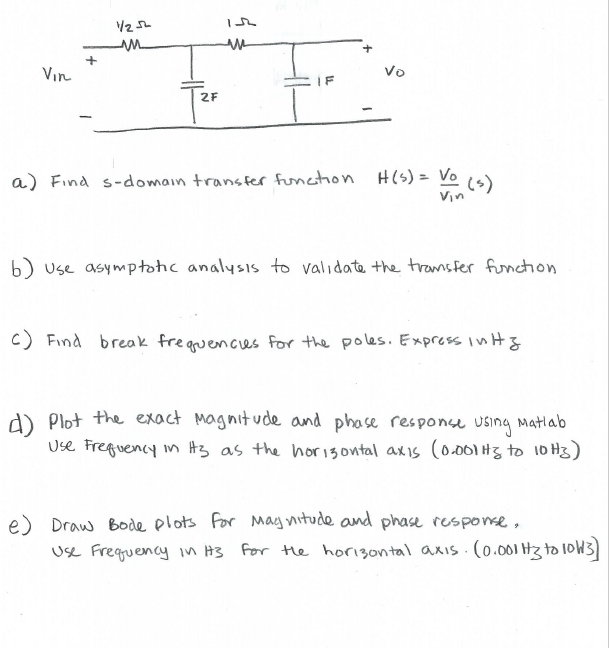 1/2 Ω
1 Ω
+
+
Vin
Vo
1F
2F
−
−
a) Find s-domain transfer function H(s) = Vo/Vin (s)
b) Use asymptotic analysis to validate the transfer function
c) Find break frequencies for the poles. Express in Hz
d) Plot the exact Magnitude and phase response using Matlab
Use Frequency in Hz as the horizontal axis (0.001 Hz to 10 Hz)
e) Draw Bode plots for Magnitude and phase response,
Use Frequency in Hz for the horizontal axis. (0.001 Hz to 10 Hz]